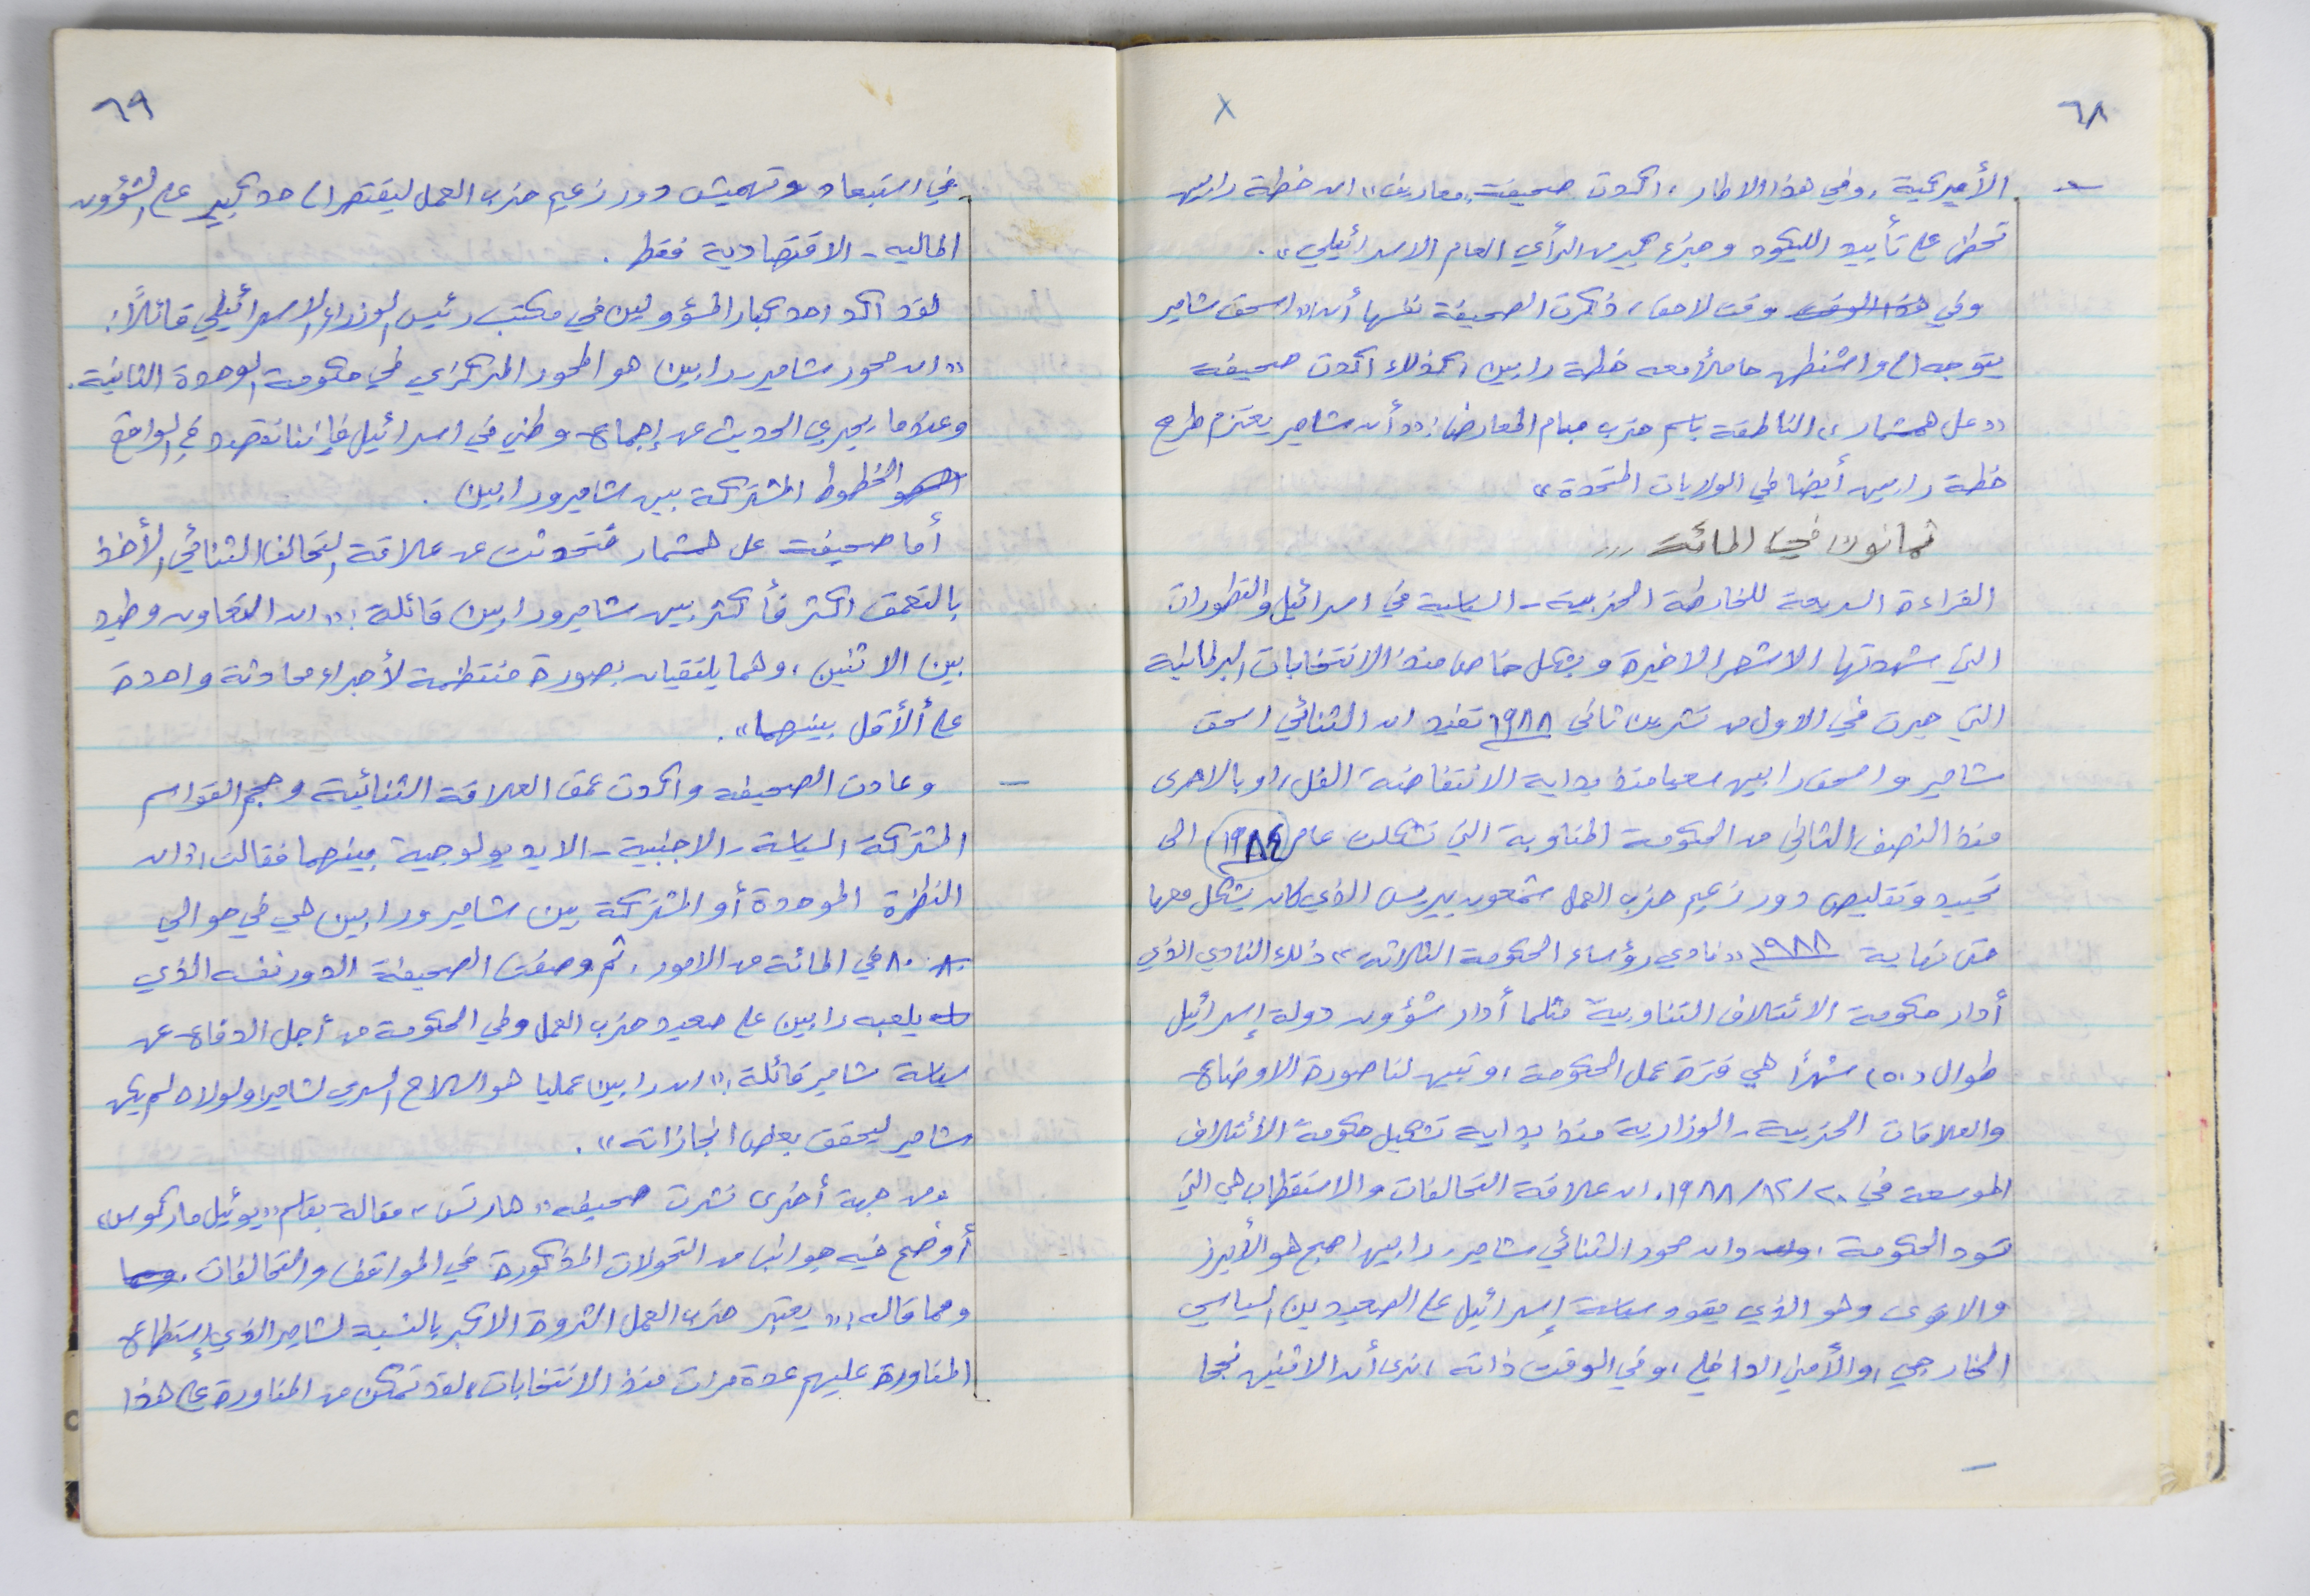 ٦٨
x
الأميركية، وفي هذا الاطار، اكدت صحيفة «معاريف» ان خطة رابين
تحظى على تأييد الليكود وجزء كبير من الرأي العام الاسرائيلي».
وفي هذا الوقت وقت لاحق، ذكرت الصحيفة نفسها أن «اسحق شامير
يتوجه الى واشنطن حاملاً معه خطة رابين، كذلك اكدت صحيفة
«عل همشمار» الناطقة باسم حزب مبام المعارض: «أن شامير يعتزم طرح
خطة رابين أيضا في الولايات المتحدة»
ثمانون في المائة ...
القراءة السريعة للخارطة الحزبية - السياسية في اسرائيل والتطورات
التي شهدتها الاشهر الاخيرة وبشكل خاص منذ الانتخابات البرلمانية
التي جرت في الاول من تشرين ثاني ١٩٨٨ تفيد ان الثنائي اسحق
شامير واسحق رابين سعيا منذ بداية الانتفاضة الفل، او بالاحرى
منذ النصف الثاني من الحكومة المناوبة التي تشكلت عام ١٩٨٤ الى
تحييد وتقليص دور زعيم حزب العمل شمعون بيريس الذي كان يشكل معهما
حتى نهاية ١٩٨٨ «نادي رؤساء الحكومة الثلاثة» ذلك النادي الذي
أدار حكومة الائتلاف التناوبية مثلما أدار شؤون دولة إسرائيل
طوال (٥٠) شهراً هي فترة عمل الحكومة، وتبين لنا صورة الاوضاع
والعلاقات الحزبية - الوزارية منذ بداية تشكيل حكومة الأئتلاف
الموسعة في ٢٠/١٢/١٩٨٨، ان علاقة التحالفات والاستقطاب هي التي
تسود الحكومة، وان محور الثنائي شامير - رابين اصبح هو الأبرز
والاقوى وهو الذي يقود سياسة إسرائيل على الصعيدين السياسي
الخارجي، والأمني الداخلي، وفي الوقت ذاته، نرى أن الاثنين نجحا
٦٩
في استبعاد وتهميش دور زعيم حزب العمل ليقتصر الى حد كبير على الشؤون
الماليه - الاقتصادية فقط.
لقد اكد احد كبار المسؤولين في مكتب رئيس الوزراء الاسرائيلي قائلاً:
«ان محور شامير - رابين هو المحور المركزي في حكومة الوحدة الثانية.
وعندما يجري الحديث عن إجماع وطني في اسرائيل فإننا نقصد في الواقع
الخطوط المشتركة بين شامير ورابين.
أما صحيفة عل همشمار فتحدثت عن علاقة التحالف الثنائي الأخذ
بالتعمق اكثر فأكثر بين شامير ورابين قائلة: «ان التعاون وطيد
بين الاثنين، وهما يلتقيان بصورة منتظمة لأجراء محادثة واحدة
على ألأقل بينهما».
وعادت الصحيفه واكدت عمق العلاقة الثنائية وحجم القواسم
المشتركة السياسة - الاجنبية - الايديولوجية بينهما فقالت: «ان
النظرة الموحدة أو المشتركة بين شامير ورابين هي في حوالي
٨٠ في المائة من الامور، ثم وصفت الصحيفة الدور نفسه الذي
يلعبه رابين على صعيد حزب العمل وفي الحكومة من أجل الدفاع عن
سياسة شامير قائلة: «ان رابين عمليا هو السلاح السري لشامير، ولولاه لم يكن
شامير ليحقق بعض انجازاته».
من جهة أخرى نشرت صحيفه «هارتس» مقالة بقلم «يوئيل ماركوس»
أوضح فيه جوانب من التحولات المذكورة في المواقف والتحالفات.
ومما قاله: «يعتبر حزب العمل الثروة الاكبر بالنسبة لشامير الذي إستطاع
المناورة عليهم عدة مرات منذ الانتخابات، لقد تمكن من المناورة على هذا